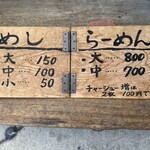 めし
大……150
中……100
小……50
らーめん
・大……800
・中……700
チャーシュー増は
2枚100円です